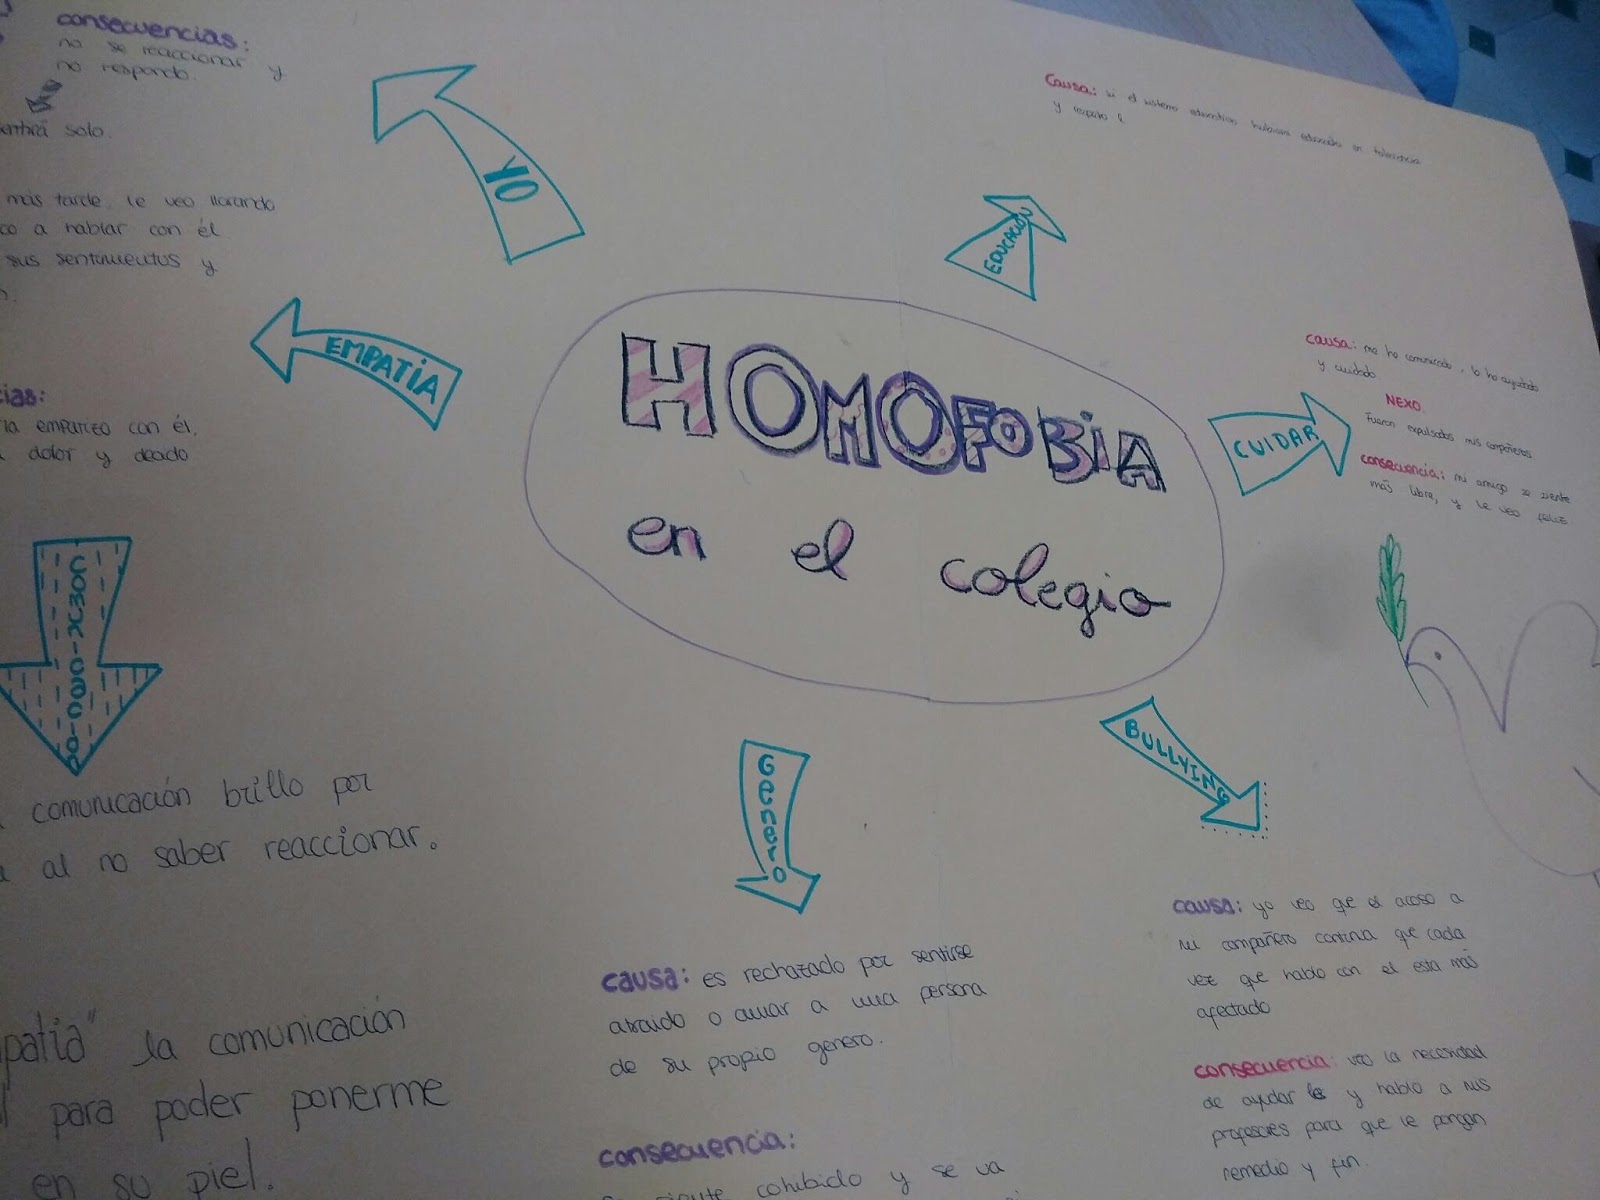 consecuencias:
no se reaccionar y
no respondo.
solo.
YO
más tarde, le veo llorando
a hablar con él
sus sentimientos y
EMPATÍA
empatizo con él,
dolor y
COMUNICACIÓN
comunicación brillo por
al no saber reaccionar.
la comunicación
para poder ponerme
en su piel.
HOMOFOBIA
en el colegio
EDUCACIÓN
Causa: si el sistema educativo hubiera educado en tolerancia
y respeto
CUIDAR
causa: me he comunicado, lo he ayudado
y cuidado
NEXO.
Fueron expulsados mis compañeros
consecuencia: mi amigo se siente
más libre, y le veo feliz
BULLYING
causa: yo veo que el acoso a
mi compañero continua que cada
vez que hablo con el esta más
afectado
consecuencia: veo la necesidad
de ayudar y hablo a mis
profesores para que le pongan
remedio y fin.
Geenero
causa: es rechazado por sentirse
atraido o amar a una persona
de su propio genero.
consecuencia:
cohibido y se va